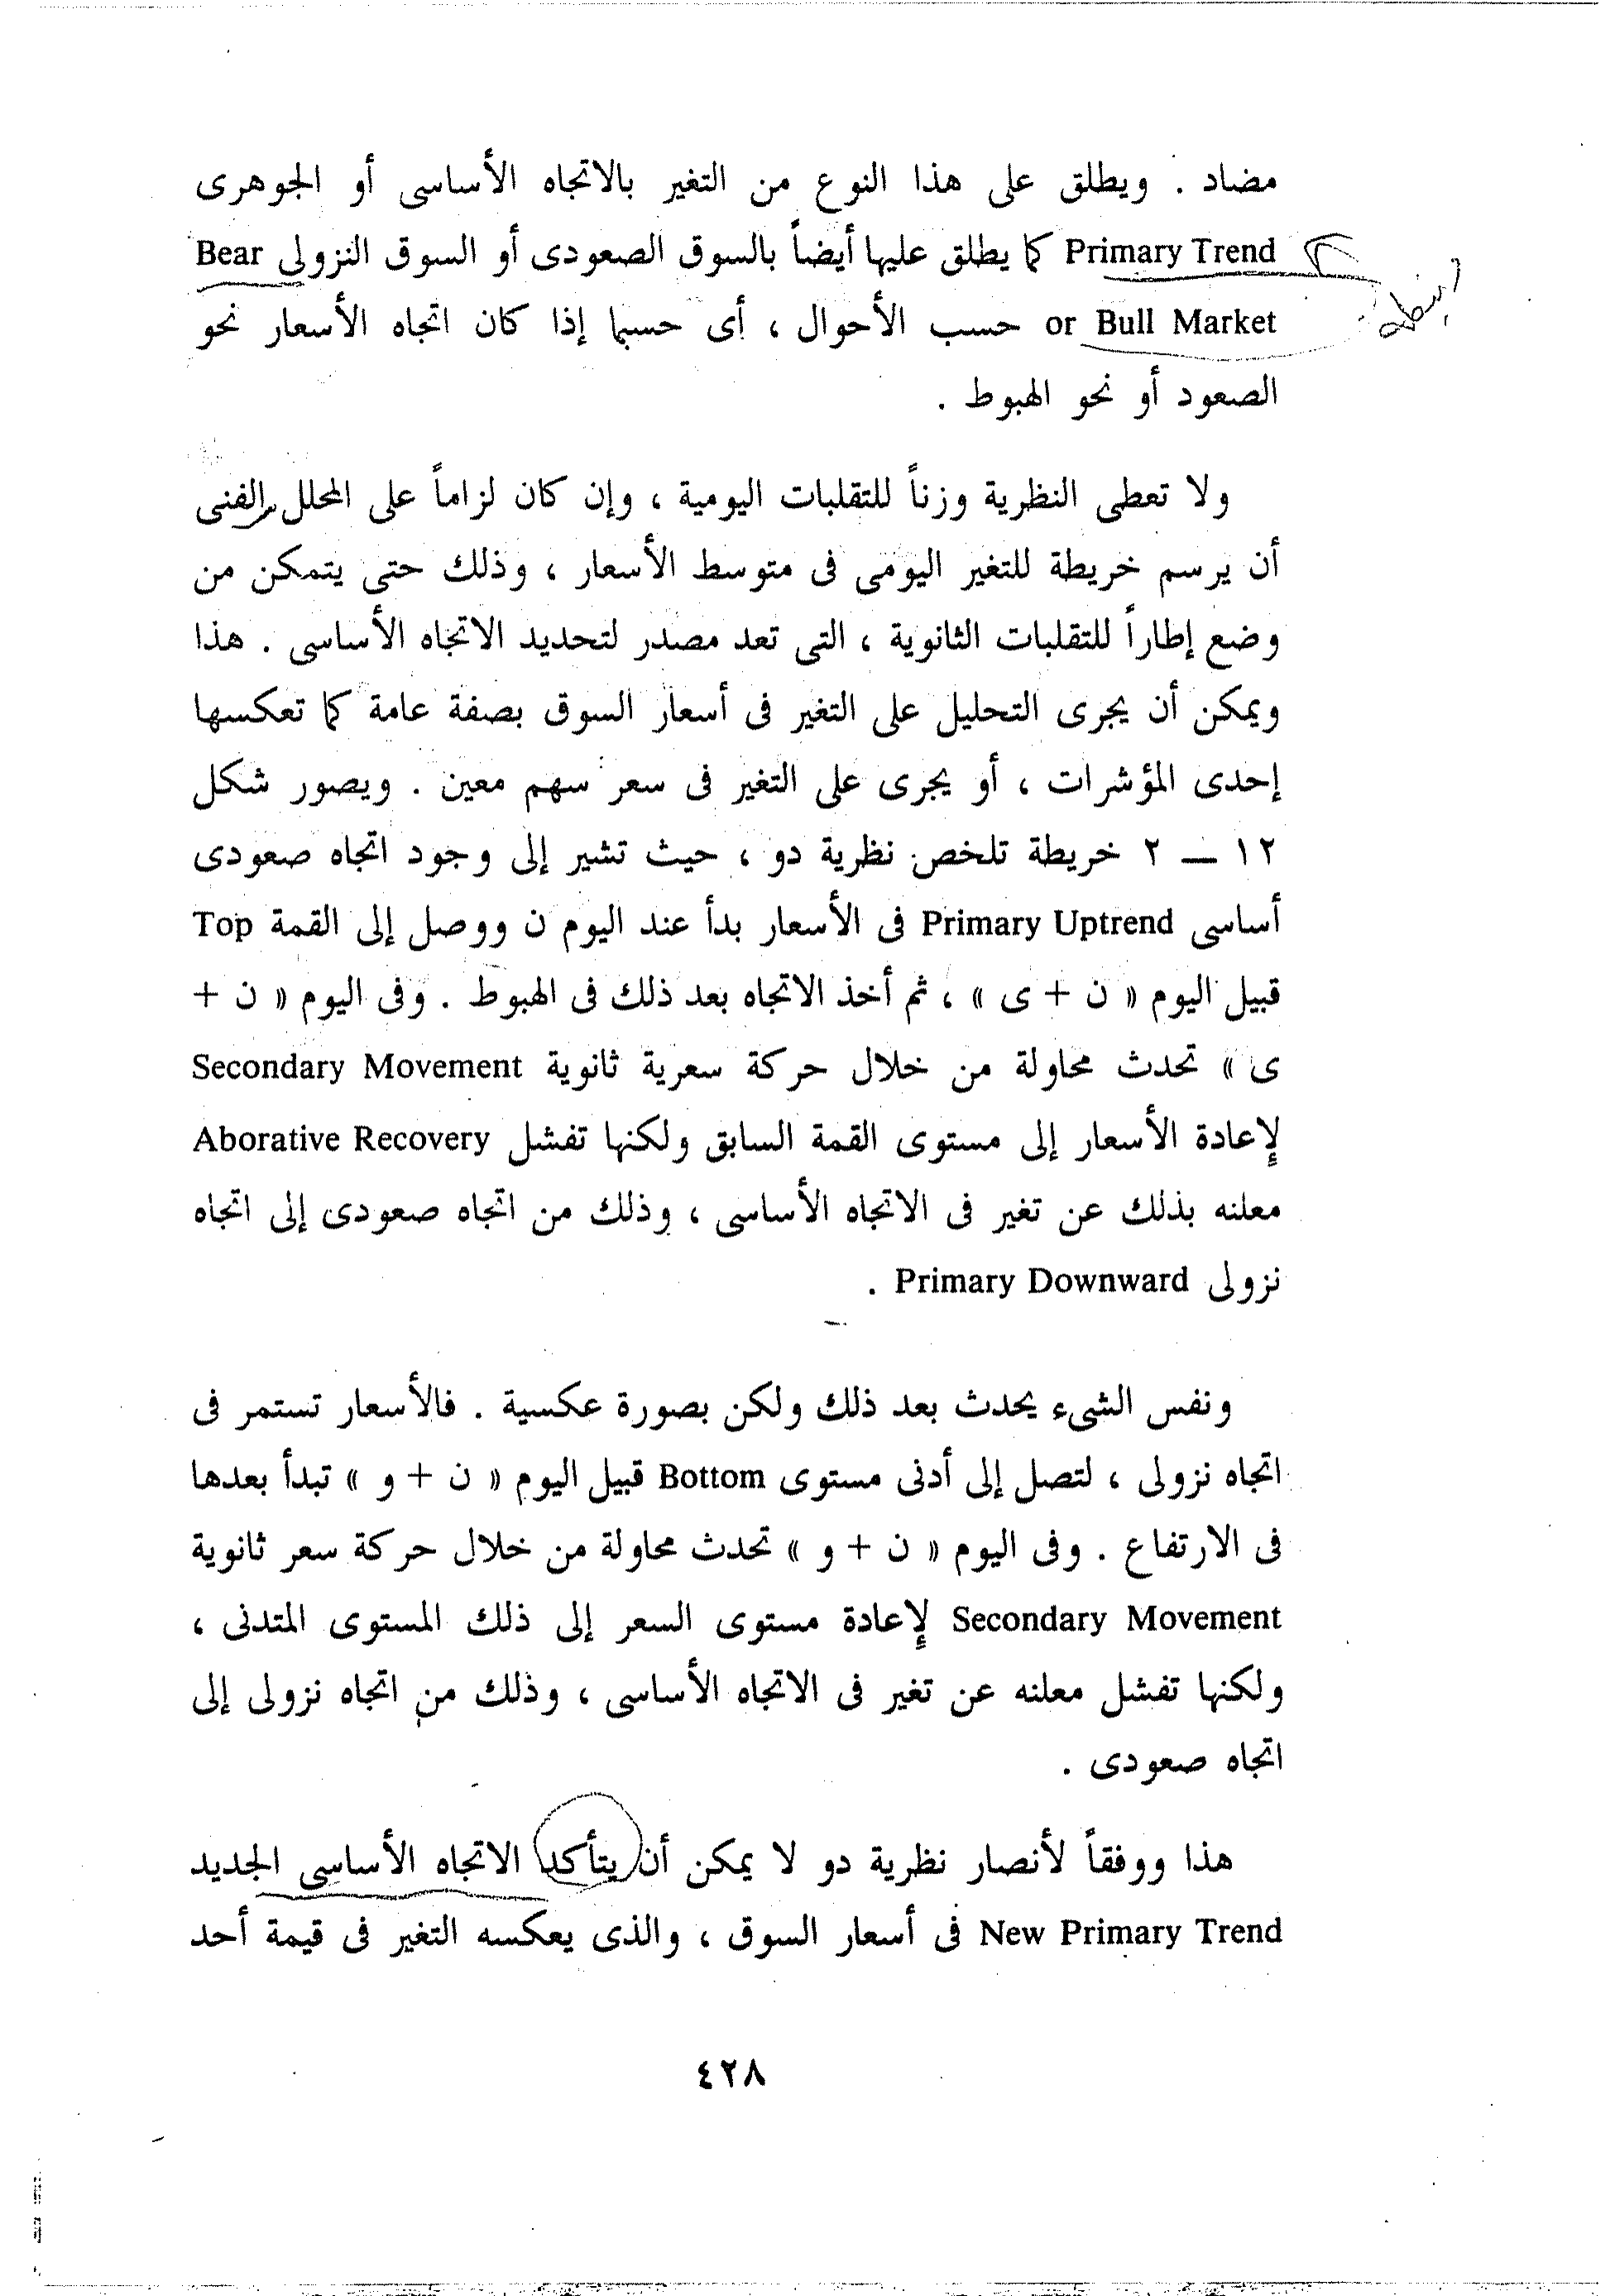 مضاد . ويطلق على هذا النوع من التغير بالاتجاه الأساسى أو الجوهرى
Primary Trend كما يطلق عليها أيضاً بالسوق الصعودى أو السوق النزولى Bear
or Bull Market حسب الأحوال ، أى حسبما إذا كان اتجاه الأسعار نحو
الصعود أو نحو الهبوط .
ولا تعطى النظرية وزناً للتقلبات اليومية ، وإن كان لزاماً على المحلل الفنى
أن يرسم خريطة للتغير اليومى فى متوسط الأسعار ، وذلك حتى يتمكن من
وضع إطاراً للتقلبات الثانوية ، التى تعد مصدر لتحديد الاتجاه الأساسى . هذا
ويمكن أن يجرى التحليل على التغير فى أسعار السوق بصفة عامة كما تعكسها
إحدى المؤشرات ، أو يجرى على التغير فى سعر سهم معين . ويصور شكل
١٢ — ٢ خريطة تلخص نظرية دو ، حيث تشير إلى وجود اتجاه صعودى
أساسى Primary Uptrend فى الأسعار بدأ عند اليوم ن ووصل إلى القمة Top
قبيل اليوم « ن + ى » ، ثم أخذ الاتجاه بعد ذلك فى الهبوط . وفى اليوم « ن +
ى » تحدث محاولة من خلال حركة سعرية ثانوية Secondary Movement
لإعادة الأسعار إلى مستوى القمة السابق ولكنها تفشل Aborative Recovery
معلنه بذلك عن تغير فى الاتجاه الأساسى ، وذلك من اتجاه صعودى إلى اتجاه
نزولى Primary Downward .
ونفس الشىء يحدث بعد ذلك ولكن بصورة عكسية . فالأسعار تستمر فى
اتجاه نزولى ، لتصل إلى أدنى مستوى Bottom قبيل اليوم « ن + و » تبدأ بعدها
فى الارتفاع . وفى اليوم « ن + و » تحدث محاولة من خلال حركة سعر ثانوية
Secondary Movement لإعادة مستوى السعر إلى ذلك المستوى المتدنى ،
ولكنها تفشل معلنه عن تغير فى الاتجاه الأساسى ، وذلك من اتجاه نزولى إلى
اتجاه صعودى .
هذا ووفقاً لأنصار نظرية دو لا يمكن أن يتأكد الاتجاه الأساسى الجديد
New Primary Trend فى أسعار السوق ، والذى يعكسه التغير فى قيمة أحد
٤٢٨